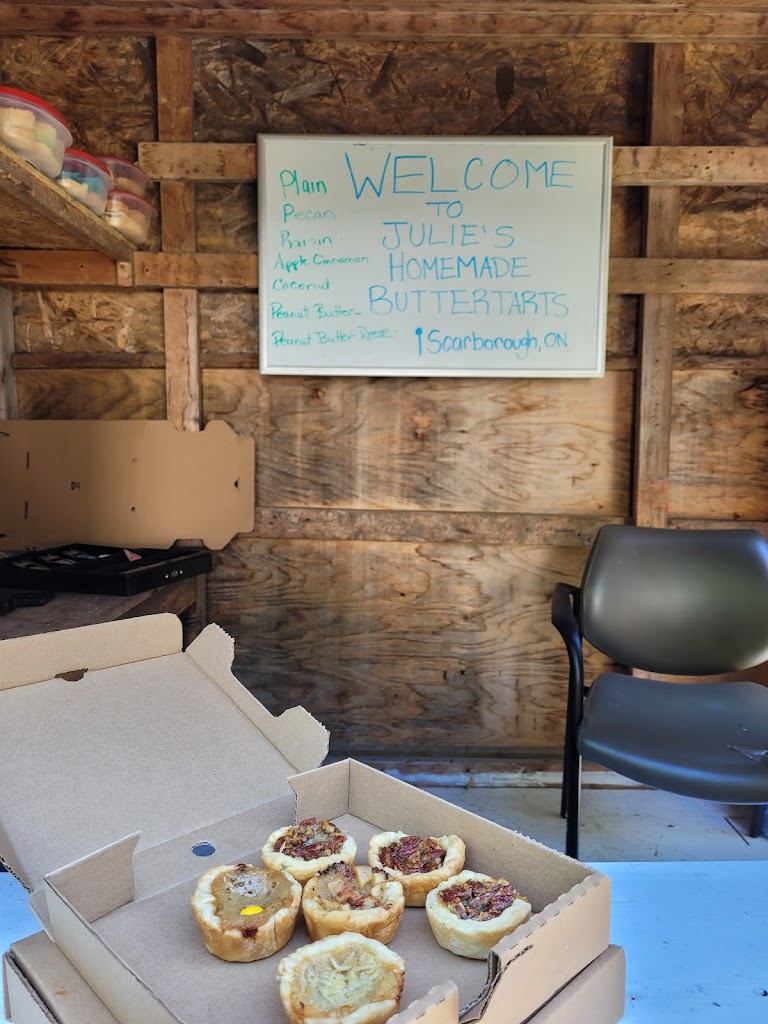 WELCOME
TO
JULIE'S
HOMEMADE
BUTTERTARTS
Scarborough, ON
Plain
Pecan
Raisin
Apple Cinnamon
Coconut
Peanut Butter
Peanut Butter Reese